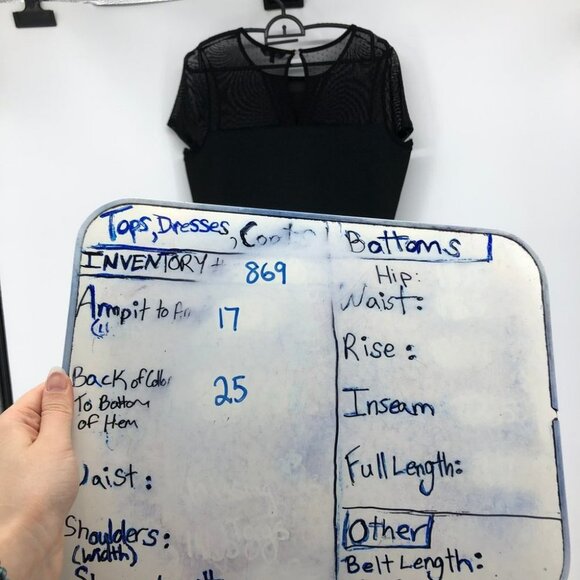 Tops, Dresses,
INVENTORY # 869
Armpit to 17
Back of Colla 25
To Bottom
of Hem
Waist:
Shoulders:
(width)
Bottoms
Hip:
Waist:
Rise:
Inseam
Full Length:
Other
Belt Length: